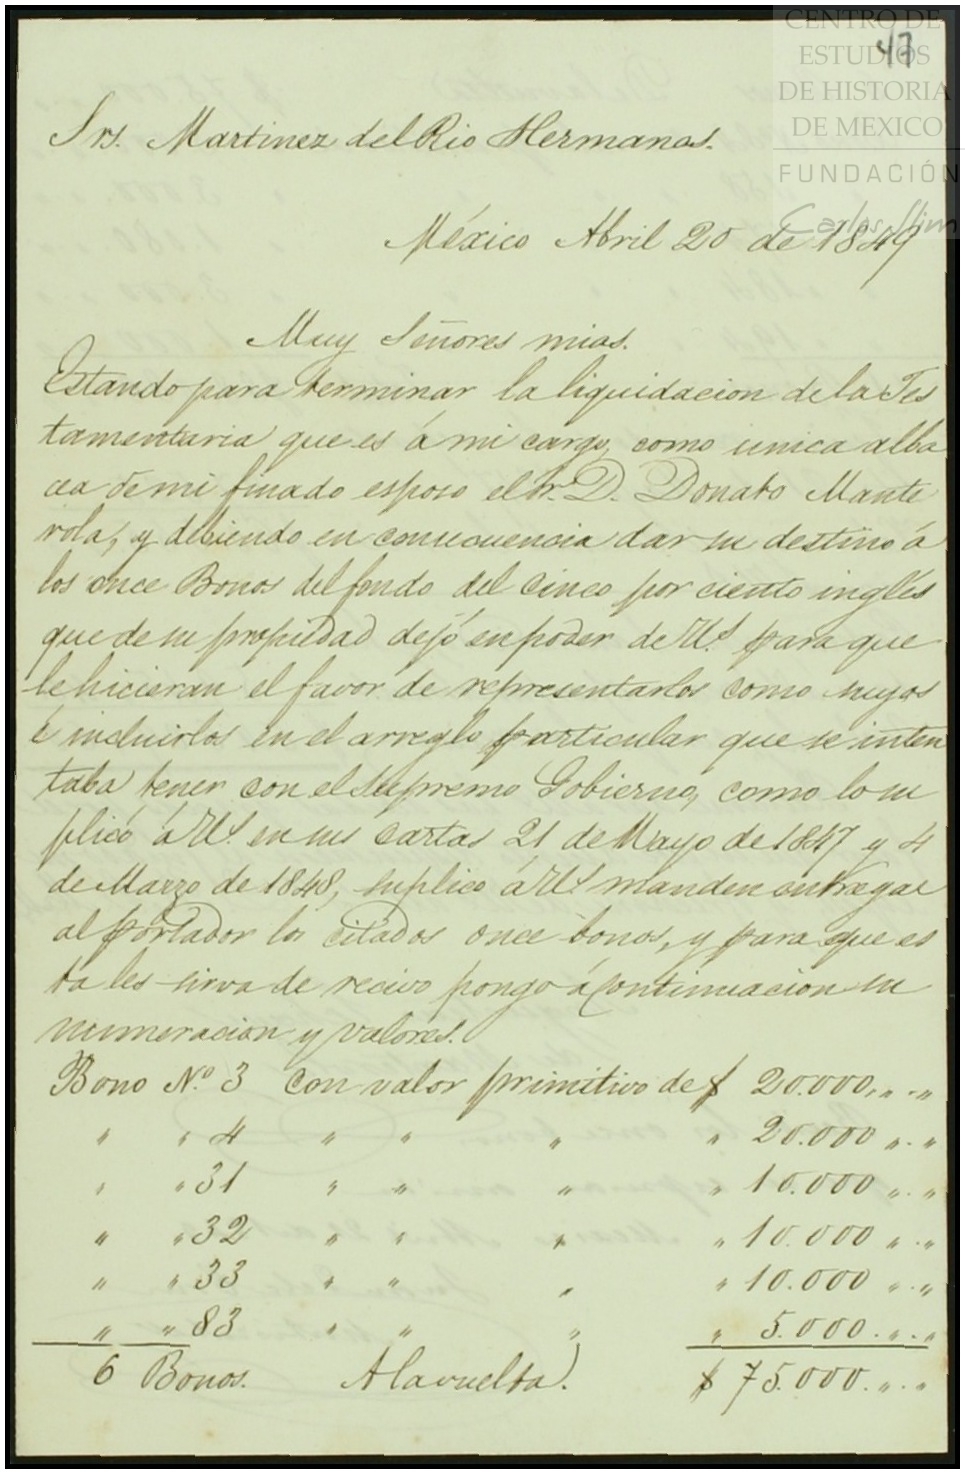 CENTRO DE
ESTUDIOS
DE HISTORIA
DE MEXICO
FUNDACIÓN
Carlos Slim
47
Srs. Martinez del Rio Hermanos.
México Abril 20 de 1849
Muy Señores mios.
Estando para terminar la liquidacion de la Tes
tamentaria que es á mi cargo, como unica alba
cea de mi finado esposo el Sr. D. Donato Mante
rola, y debiendo en consecuencia dar su destino á
los once Bonos del fondo del cinco por ciento inglés
que de su propiedad dejó en poder de Us. para que
le hicieran el favor de representarlos como suyos
é incluirlos en el arreglo particular que se inten
taba tener con el Supremo Gobierno, como lo su
plicó á Us. en sus cartas 21 de Mayo de 1847 y 4
de Marzo de 1848, suplico á Us. manden entregar
al portador los citados once bonos, y para que es
ta les sirva de recivo pongo á continuacion su
numeracion y valores.
Bono N.º 3 con valor primitivo de $ 20.000 „ . „
„ „ 4 „ „ „ „ 20.000 „ . „
„ „ 31 „ „ „ „ 10.000 „ . „
„ „ 32 „ „ „ „ 10.000 „ . „
„ „ 33 „ „ „ „ 10.000 „ . „
„ „ 83 „ „ „ „ 5.000 . „ . „
6 Bonos. A la vuelta) . $ 75.000 . „ . „